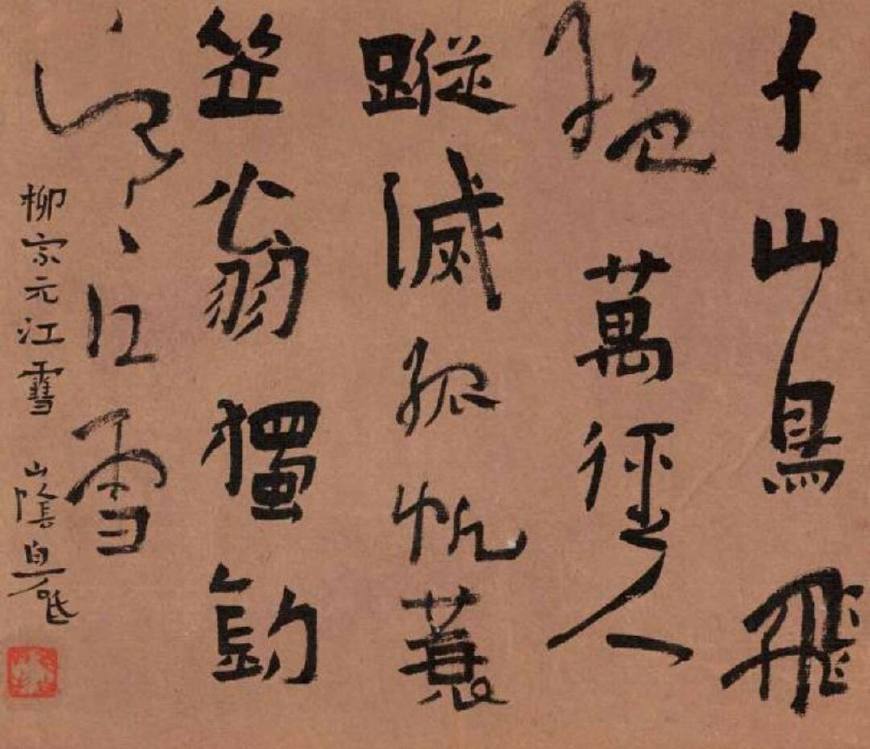 千山鳥飛
絕萬徑人
蹤滅孤帆蓑
笠翁獨釣
寒江雪
柳宗元江雪 山陰